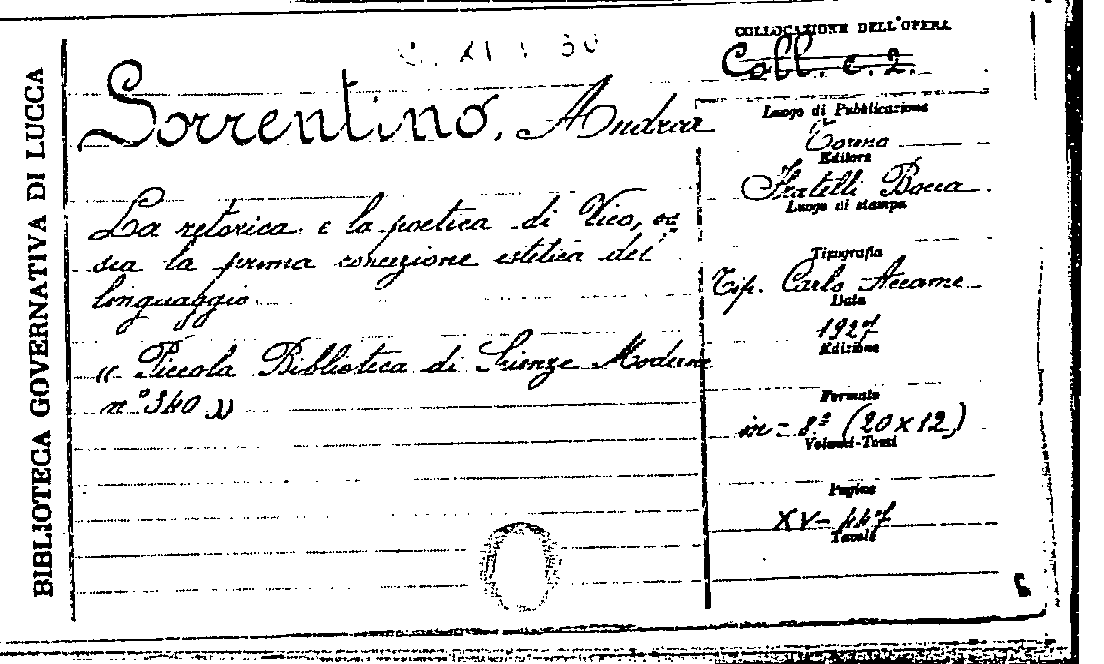 BIBLIOTECA GOVERNATIVA DI LUCCA
Sorrentino, Andrea
La retorica e la poetica di Vico, os
sia la prima concezione estetica del
linguaggio
« Piccola Biblioteca di Scienze Moderne
n° 340 »
COLLOCAZIONE DELL'OPERA
Coll. c. 2.
Luogo di Pubblicazione
Torino
Editore
Fratelli Bocca
Luogo di stampa
Tipografia
Tip. Carlo Accame
Data
1927
Edizione
Formato
in-8° (20x12)
Volumi-Tomi
Pagine
XV-447
Tavole